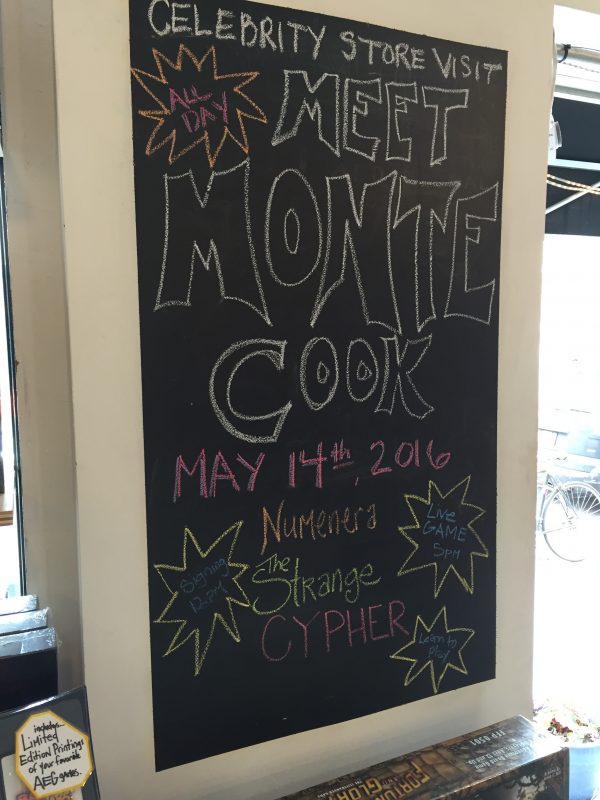 CELEBRITY STORE VISIT
ALL
DAY
MEET
MONTE
COOK
MAY 14th, 2016
Numenera
The
Strange
CYPHER
Signing
12pm
Live
GAME
5pm
Learn to
Play
includes...
Limited
Edition Printings
of your favorite
AEG games.
FORTUNE
AND
GLORY